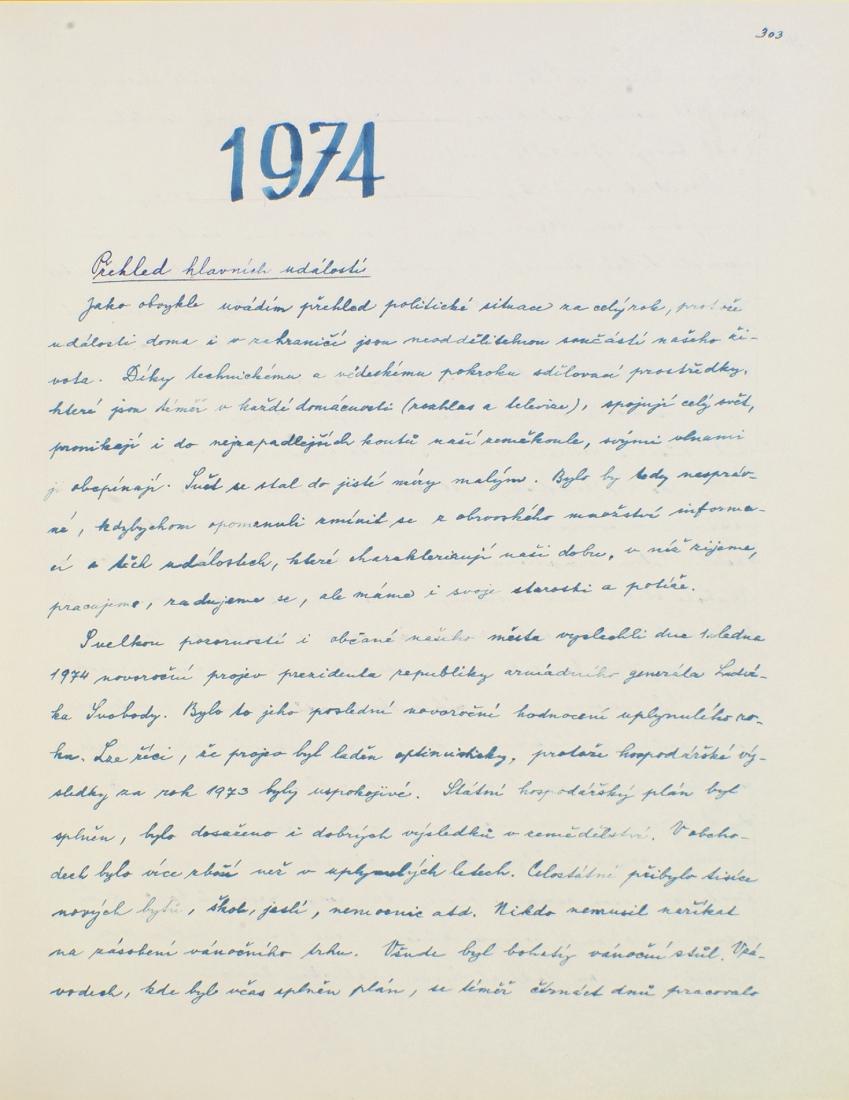 303
1974
Přehled hlavních událostí
Jako obvykle uvádím přehled politické situace za celý rok, protože
události doma i v zahraničí jsou neoddělitelnou součástí našeho ži-
vota. Díky technickému a vědeckému pokroku sdělovací prostředky,
které jsou téměř v každé domácnosti (rozhlas a televize), spojují celý svět,
pronikají i do nejzapadlejších koutů naší zeměkoule, svými vlnami
ji obepínají. Svět se stal do jisté míry malým. Bylo by tedy nespráv-
né, kdybychom opomenuli zmínit se z obrovského množství informa-
cí o těch událostech, které charakterizují naši dobu, v níž žijeme,
pracujeme, radujeme se, ale máme i svoje starosti a potíže.
S velkou pozorností i občané našeho města vyslechli dne 1. ledna
1974 novoroční projev prezidenta republiky armádního generála Ludví-
ka Svobody. Bylo to jeho poslední novoroční hodnocení uplynulého ro-
ku. Lze říci, že projev byl laděn optimisticky, protože hospodářské vý-
sledky za rok 1973 byly uspokojivé. Státní hospodářský plán byl
splněn, bylo dosaženo i dobrých výsledků v zemědělství. V obcho-
dech bylo více zboží než v uplynulých letech. Celostátně přibylo tisíce
nových bytů, škol, jeslí, nemocnic atd. Nikdo nemusil naříkat
na zásobení vánočního trhu. Všude byl bohatý vánoční stůl. V zá-
vodech, kde byl včas splněn plán, se téměř čtrnáct dnů pracovalo